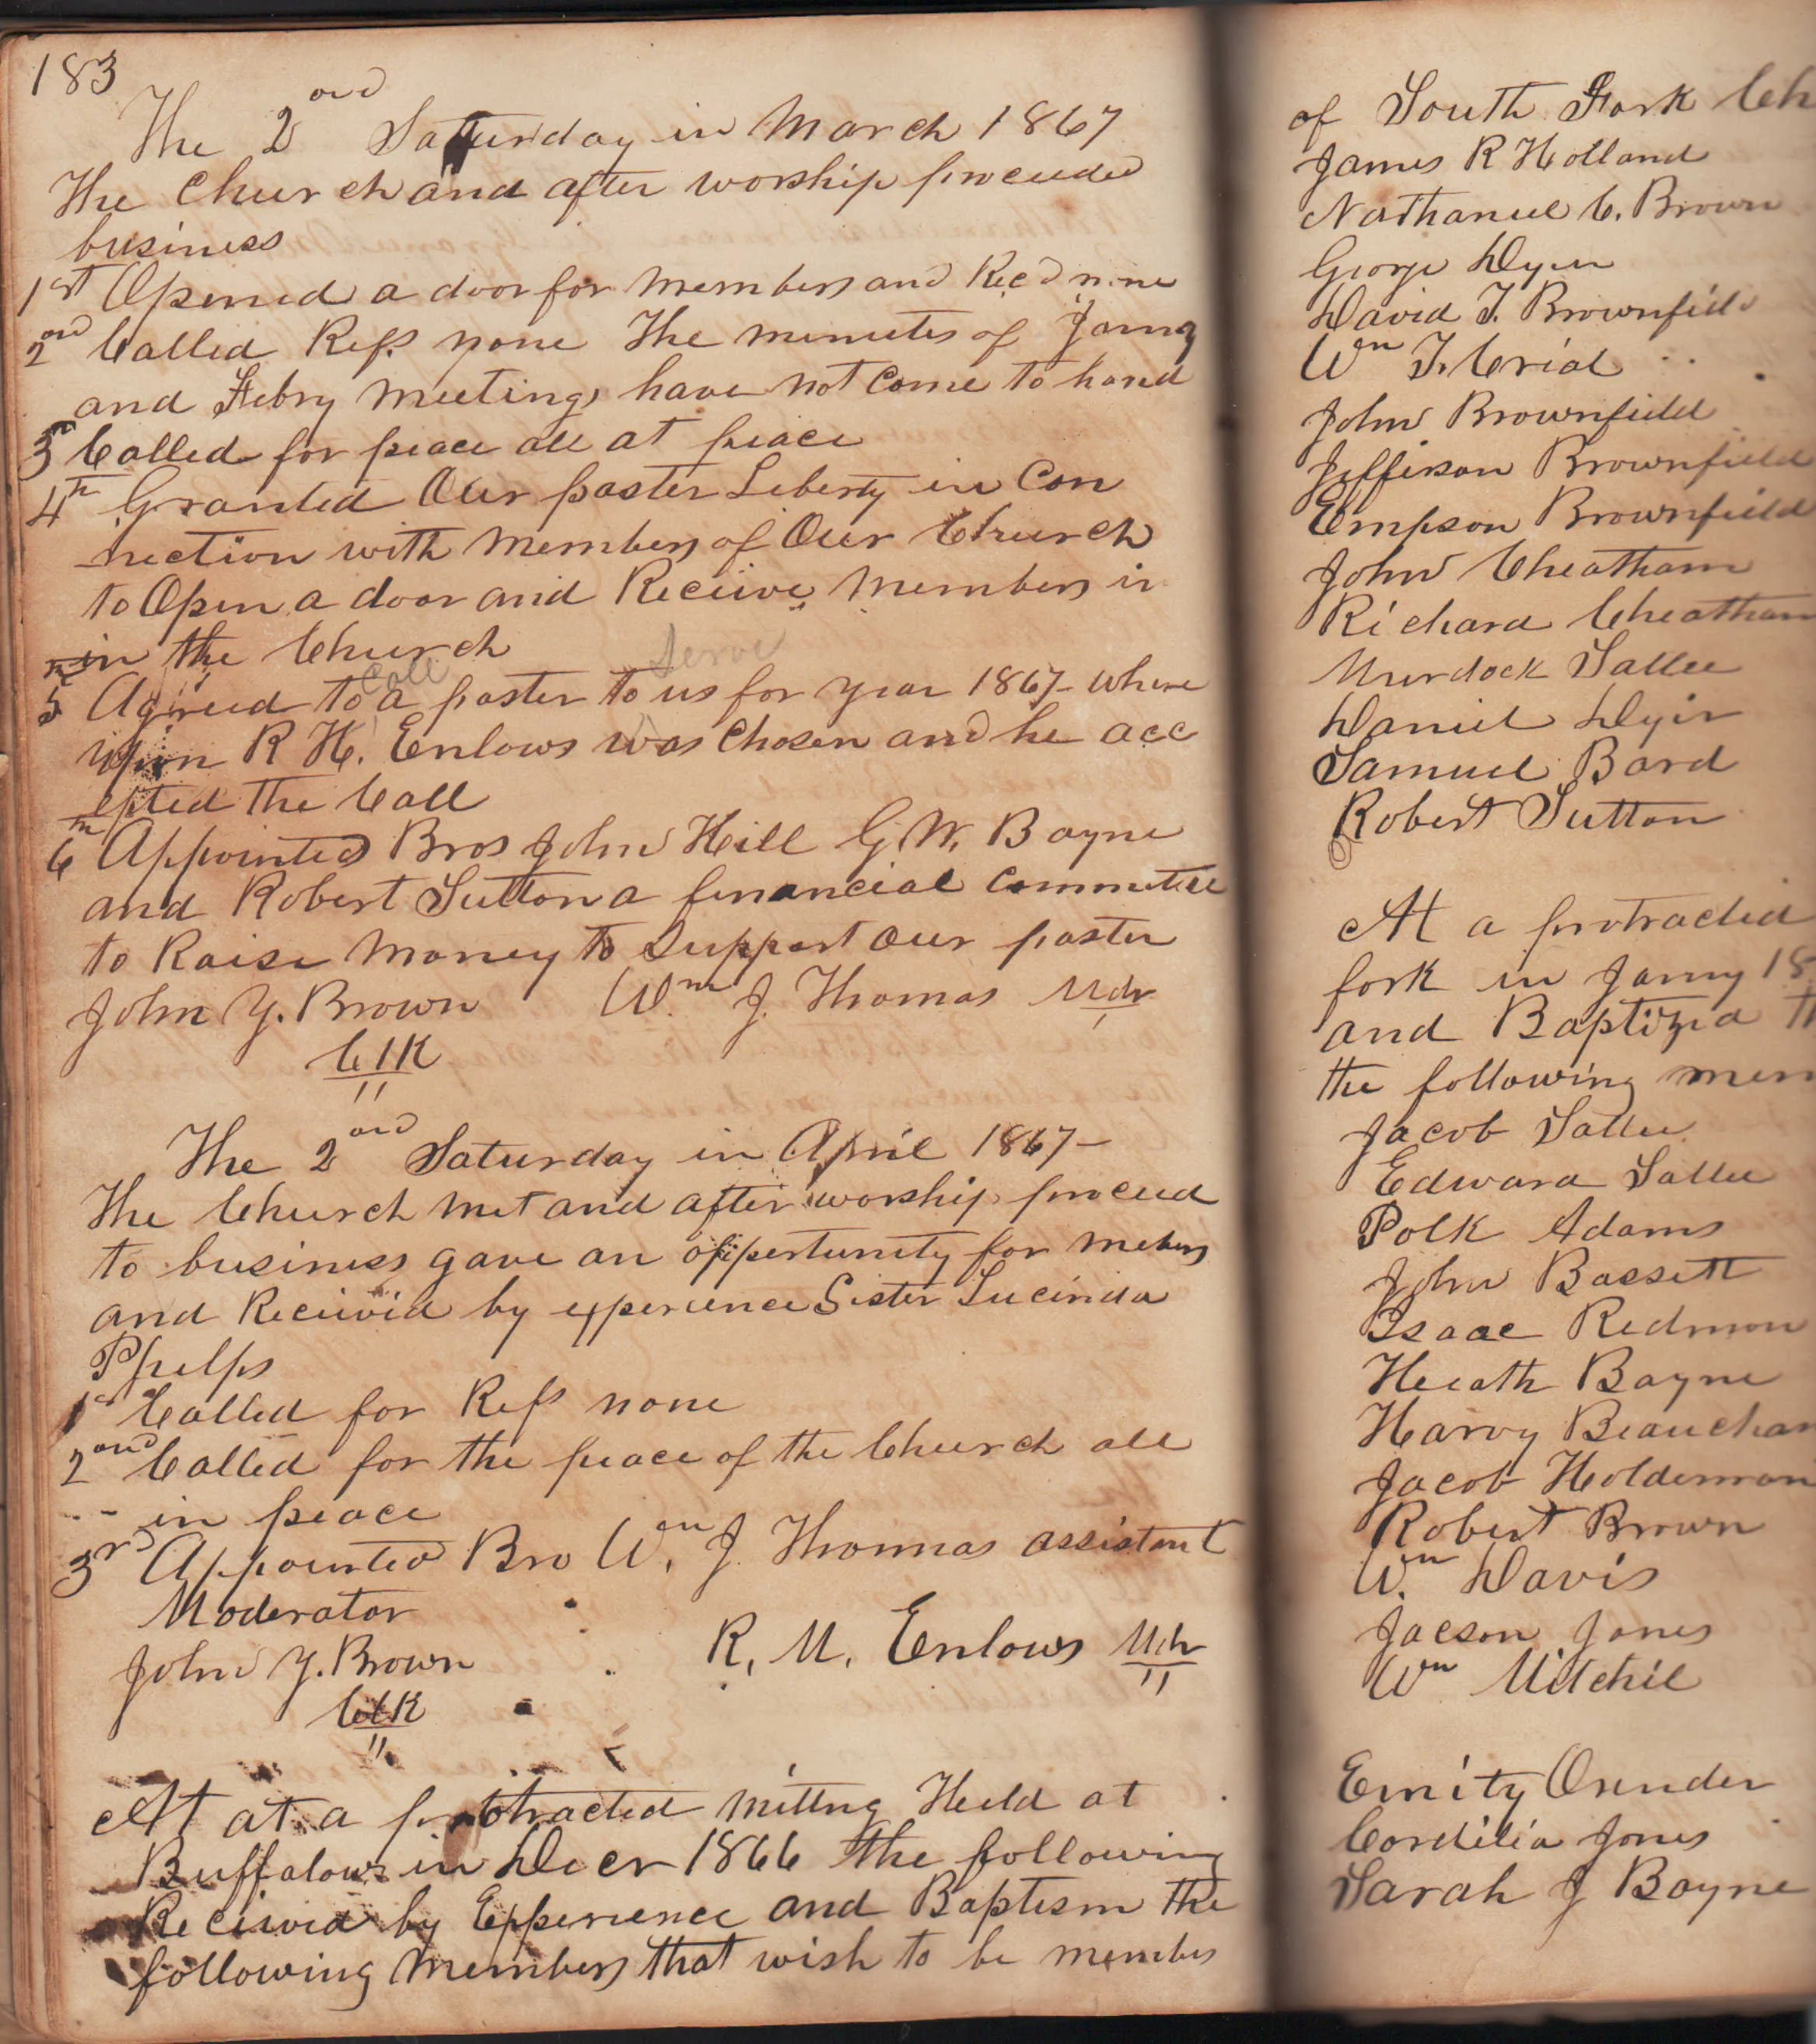 183
The 2ond Saturday in March 1867
The Church and after worship proceeded
business
1st Opened a door for members and Recd none
2ond Called Refs none The minutes of Jany
and Febry meetings have not come to hand
3rd Called for peace all at peace
4th Granted Our paster Liberty in Con
nection with members of Our Church
to Open a door and Receive members in
in the Church
5th Agreed to call a paster to serve us for year 1867 - where
upon R H. Enlows was chosen and he acc
epted the Call
6th Appointed Bros John Hill G. W. Bayne
and Robert Sutton a financial committee
to Raise money to Support our paster
John Y. Brown Wm J. Thomas Mdr
Clk
The 2ond Saturday in April 1867 -
The Church met and after worship proceed
to business gave an oppertunity for mebers
and Received by experience Sister Lucinda
Phelps
1st Called for Refs none
2ond Called for the peace of the Church all
in peace
3rd Appointed Bro Wm J. Thomas assistant
Moderator
John Y. Brown R. M. Enlows Mdr
Clk
At at a protracted mittng Held at
Buffalow in Decr 1866 the following
Received by Experience and Baptism the
following members that wish to be membes
of South Fork Ch
James R Holland
Nathaniel C. Brown
George Dyer
David T. Brownfield
Wm T. Crial
John Brownfield
Jefferson Brownfield
Empson Brownfield
John Cheatham
Richard Cheatham
Murdock Sallee
Daniel Dyer
Samuel Bard
Robert Sutton
At a protracted
fork in Jany 18
and Baptized th
the following mem
Jacob Sallee
Edward Sallee
Polk Adams
John Bassett
Isaac Redmon
Heath Bayne
Harvy Beaucham
Jacob Holderman
Robert Brown
Wm Davis
Jacson Jones
Wm Mitchel
Emity
Cordelia Jones
Sarah J Bayne